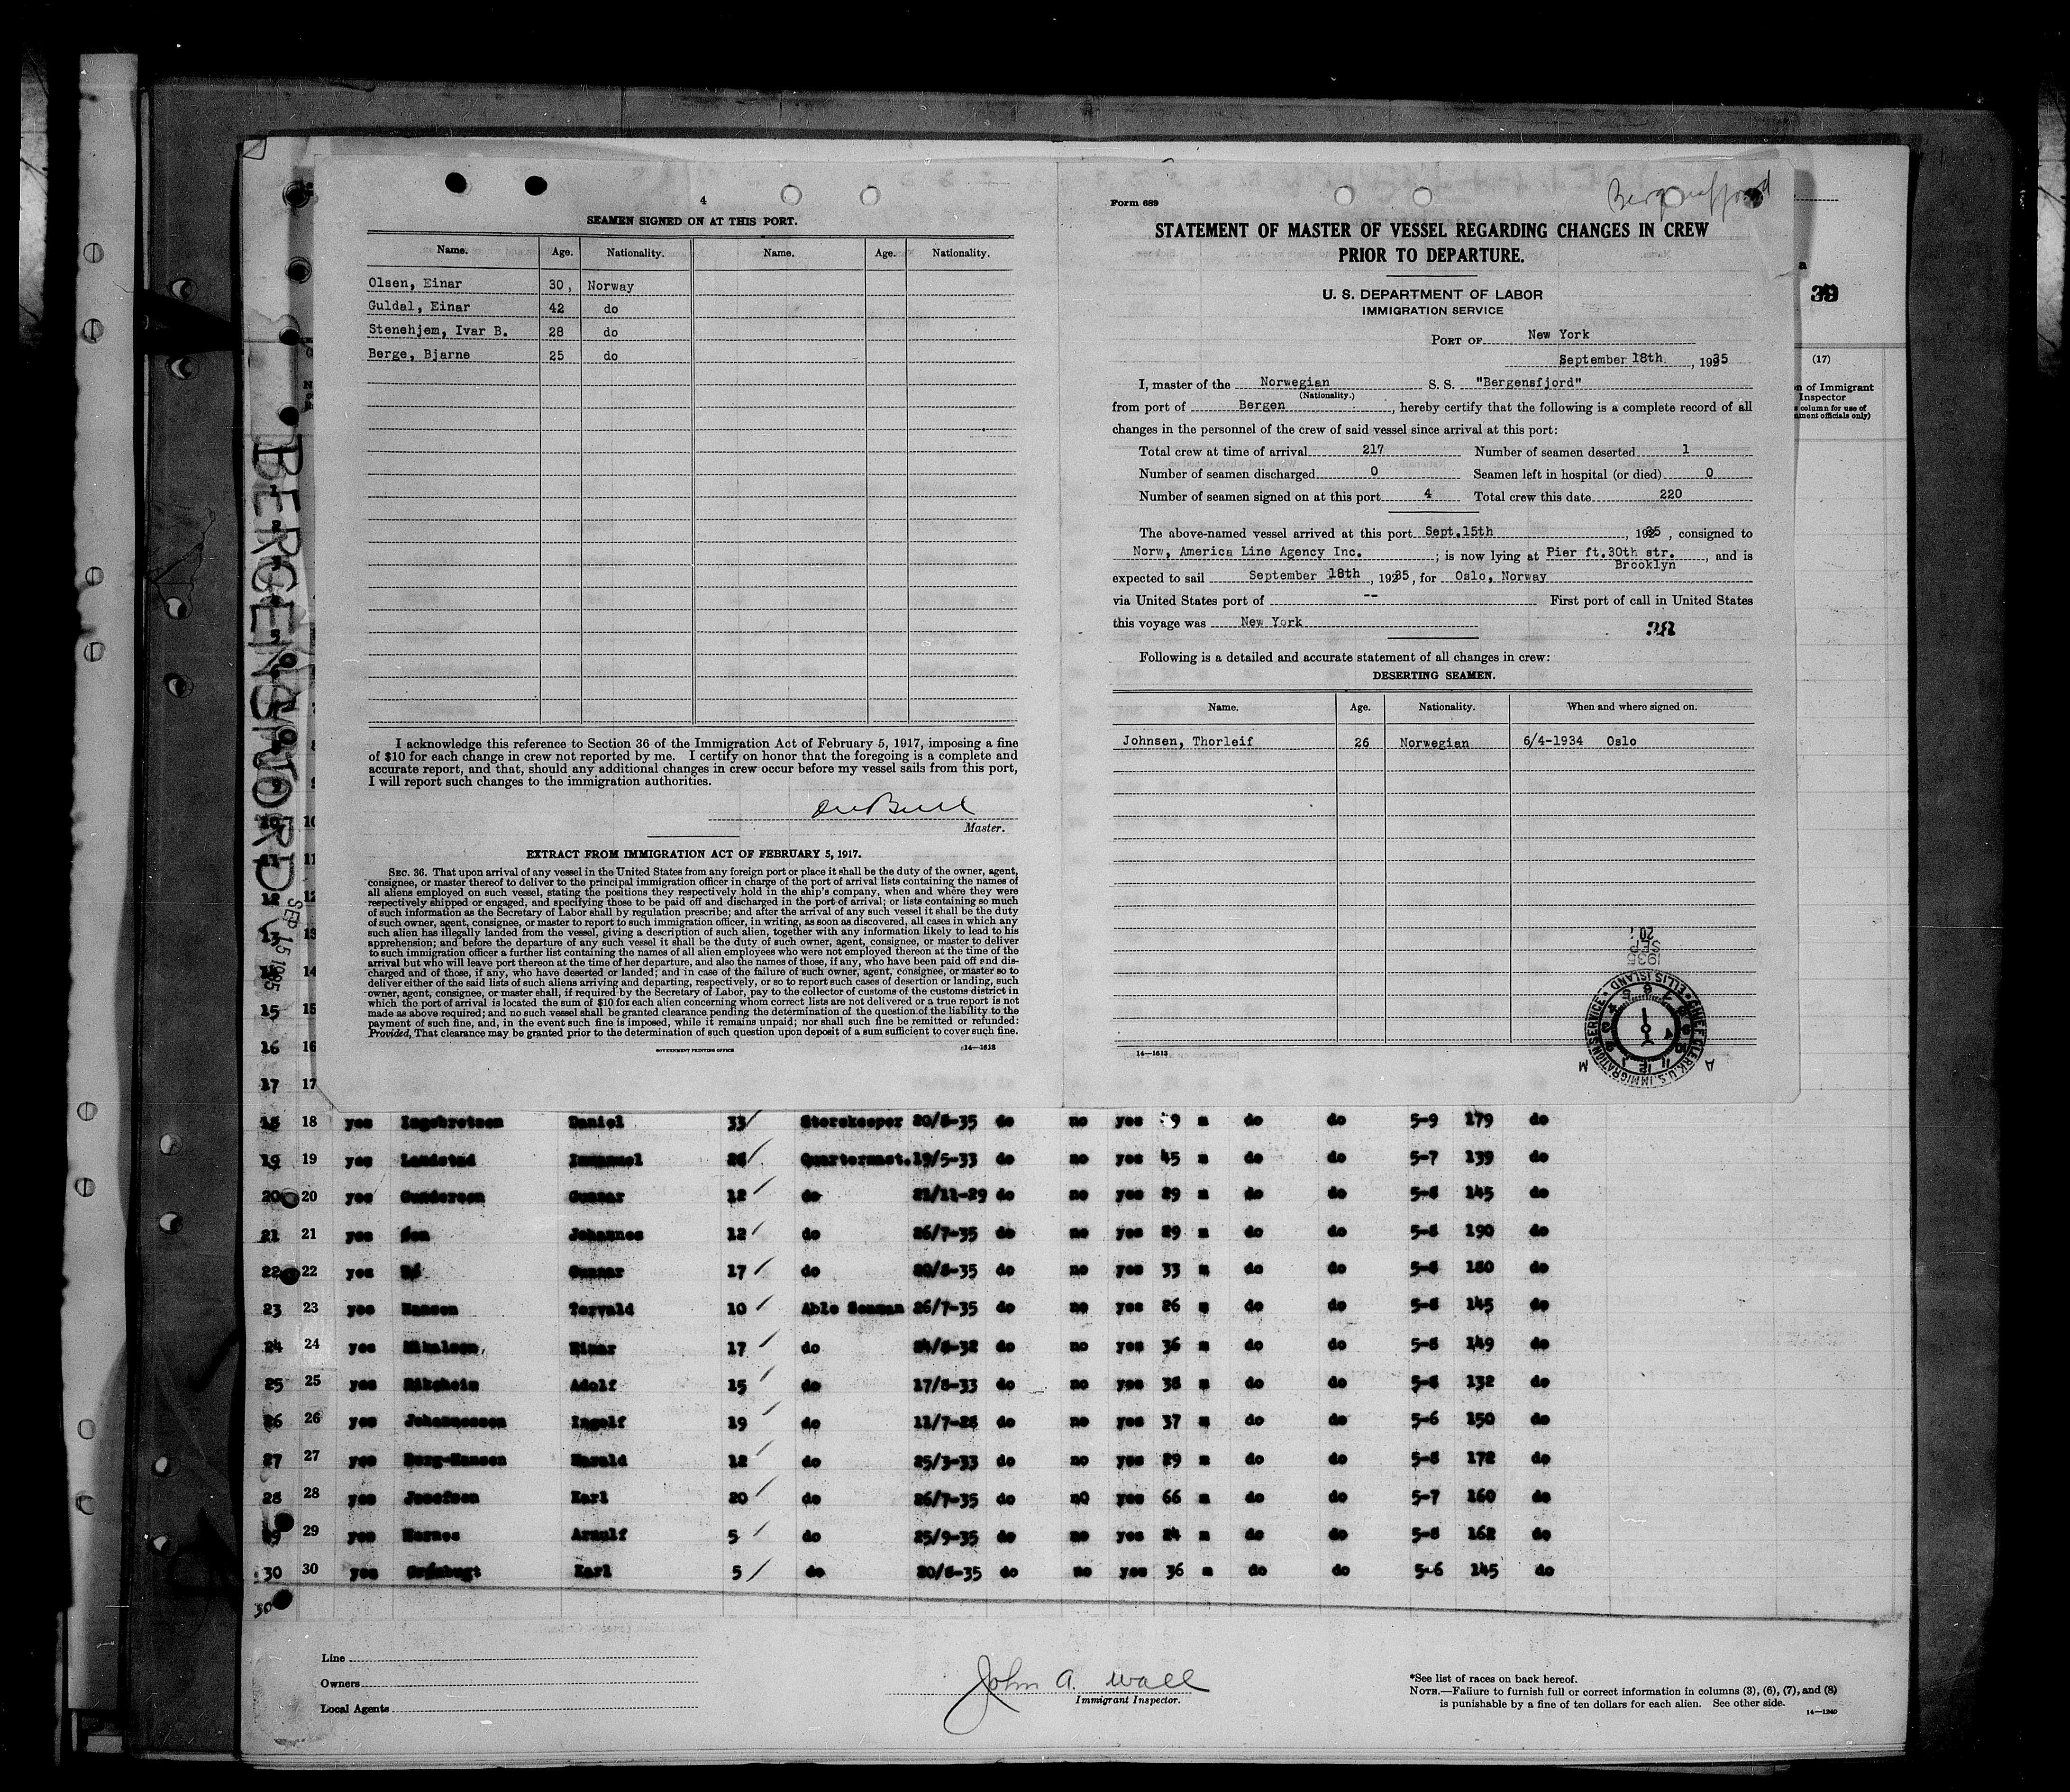 4
SEAMEN SIGNED ON AT THIS PORT.
Name. Age. Nationality. Name. Age. Nationality.
Olsen, Einar 30, Norway
Guldal, Einar 42 do
Stenehjem, Ivar B. 28 do
Berge, Bjarne 25 do
I acknowledge this reference to Section 36 of the Immigration Act of February 5, 1917, imposing a fine
of $10 for each change in crew not reported by me. I certify on honor that the foregoing is a complete and
accurate report, and that, should any additional changes in crew occur before my vessel sails from this port,
I will report such changes to the immigration authorities.
Master.
EXTRACT FROM IMMIGRATION ACT OF FEBRUARY 5, 1917.
SEC. 36. That upon arrival of any vessel in the United States from any foreign port or place it shall be the duty of the owner, agent,
consignee, or master thereof to deliver to the principal immigration officer in charge of the port of arrival lists containing the names of
all aliens employed on such vessel, stating the positions they respectively hold in the ship's company, when and where they were
respectively shipped or engaged, and specifying those to be paid off and discharged in the port of arrival; or lists containing so much
of such information as the Secretary of Labor shall by regulation prescribe; and after the arrival of any such vessel it shall be the duty
of such owner, agent, consignee, or master to report to such immigration officer, in writing, as soon as discovered, all cases in which any
such alien has illegally landed from the vessel, giving a description of such alien, together with any information likely to lead to his
apprehension; and before the departure of any such vessel it shall be the duty of such owner, agent, consignee, or master to deliver
to such immigration officer a further list containing the names of all alien employees who were not employed thereon at the time of the
arrival but who will leave port thereon at the time of her departure, and also the names of those, if any, who have been paid off and dis-
charged and of those, if any, who have deserted or landed; and in case of the failure of such owner, agent, consignee, or master so to
deliver either of the said lists of such aliens arriving and departing, respectively, or so to report such cases of desertion or landing, such
owner, agent, consignee, or master shall, if required by the Secretary of Labor, pay to the collector of customs of the customs district in
which the port of arrival is located the sum of $10 for each alien concerning whom correct lists are not delivered or a true report is not
made as above required; and no such vessel shall be granted clearance pending the determination of the question of the liability to the
payment of such fine, and, in the event such fine is imposed, while it remains unpaid; nor shall such fine be remitted or refunded:
Provided, That clearance may be granted prior to the determination of such question upon deposit of a sum sufficient to cover such fine.
GOVERNMENT PRINTING OFFICE 14—1613
Form 689
Bergensfjord
STATEMENT OF MASTER OF VESSEL REGARDING CHANGES IN CREW
PRIOR TO DEPARTURE.
U. S. DEPARTMENT OF LABOR
IMMIGRATION SERVICE
PORT OF New York
September 18th, 1935
I, master of the Norwegian S. S. "Bergensfjord"
(Nationality.)
from port of Bergen, hereby certify that the following is a complete record of all
changes in the personnel of the crew of said vessel since arrival at this port:
Total crew at time of arrival 217 Number of seamen deserted 1
Number of seamen discharged 0 Seamen left in hospital (or died) 0
Number of seamen signed on at this port 4 Total crew this date 220
The above-named vessel arrived at this port Sept.15th, 1935, consigned to
Norw, America Line Agency Inc.; is now lying at Pier ft.30th str. Brooklyn, and is
expected to sail September 18th, 1935, for Oslo, Norway
via United States port of -- First port of call in United States
this voyage was New York
38
Following is a detailed and accurate statement of all changes in crew:
DESERTING SEAMEN.
Name. Age. Nationality. When and where signed on.
Johnsen, Thorleif 26 Norwegian 6/4-1934 Oslo
1935 SEP 20
CHIEF CLERK, U.S. IMMIGRATION SERVICE ELLIS ISLAND
14—1613
39
(17)
n of Immigrant
Inspector
column for use of
ment officials only)
BERGENSFJORD
SEP 15 1935
18 18 yes Ingebretsen Daniel 33 Storekeeper 20/8-35 do no yes m do do 5-9 179 do
19 19 yes Landstad Immanuel Quartermast. 19/5-33 do no yes 45 m do do 5-7 139 do
20 20 yes Gundersen Gunnar 12 do 21/11-29 do no yes 29 m do do 5-8 145 do
21 21 yes Johannes 12 do 26/7-35 do no yes 29 m do do 5-8 190 do
22 22 yes Gunnar 17 do 20/8-35 do no yes 33 m do do 5-8 180 do
23 23 yes Hansen Torvald 10 Able Seaman 26/7-35 do no yes 26 m do do 5-8 145 do
24 24 yes Mikalsen, Einar 17 do 24/8-32 do no yes 36 m do do 5-8 149 do
25 25 yes Adolf 15 do 17/8-33 do no yes 38 m do do 5-8 132 do
26 26 yes Johannessen Ingolf 19 do 11/7-28 do no yes 37 m do do 5-6 150 do
27 27 yes Berg-Hansen Harald 12 do 25/3-33 do no yes 29 m do do 5-8 172 do
28 28 yes Josefsen Karl 20 do 26/7-35 do no yes 66 m do do 5-7 160 do
29 29 yes Arnulf 5 do 25/9-35 do no yes 24 m do do 5-8 162 do
30 30 yes Karl 5 do 20/8-35 do no yes 36 m do do 5-6 145 do
30
Line
Owners
Local Agents
John A. Wall
Immigrant Inspector.
*See list of races on back hereof.
NOTE.—Failure to furnish full or correct information in columns (3), (6), (7), and (8)
is punishable by a fine of ten dollars for each alien. See other side.
14—1240